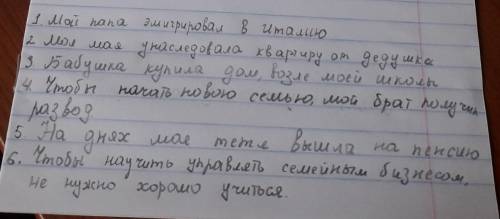 1 Мой папа эмигрировал в Италию
2 Моя мая унаследовала квартиру от дедушка
3 Бабушка купила дом, возле моей школы
4. Чтобы начать новою семью, мой брат получил
развод
5. На днях мая тетя вышла на пенсию
6. Чтобы научить управлять семейным бизнесом,
не нужно хорошо учиться.